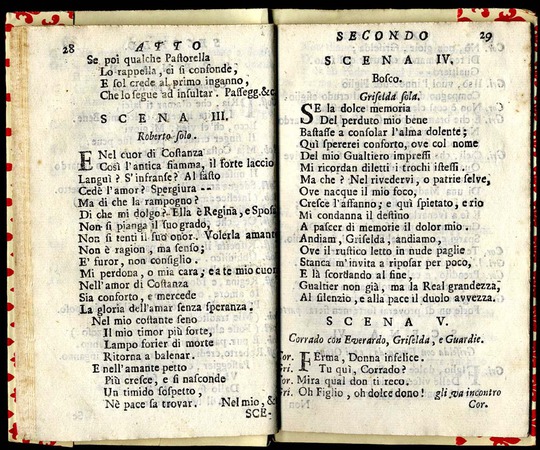 28 ATTO
Se poi qualche Pastorella
Lo rappella, ei si confonde,
E sol crede al primo inganno,
Che lo segue ad insultar. Passegg.&c.
SCENA III.
Roberto solo.
E Nel cuor di Costanza
Così l'antica fiamma, il forte laccio
Languì? S'infranse? Al fasto
Cedè l'amor? Spergiura --
Ma di che la rampogno?
Di che mi dolgo? Ella è Regina, e Sposa
Non si pianga il suo grado,
Non si tenti il suo onor. Volerla amante
Non è ragion, ma senso;
E' furor, non consiglio.
Mi perdona, o mia cara; e a te mio cuor
Nell'amor di Costanza
Sia conforto, e mercede
La gloria dell'amar senza speranza.
Nel mio costante seno
Il mio timor più forte,
Lampo forier di morte
Ritorna a balenar.
E nell'amante petto
Più cresce, e si nasconde
Un timido sospetto,
Nè pace sa trovar. Nel mio, &
SCE-
SECONDO 29
SCENA IV.
Bosco.
Griselda sola.
SE la dolce memoria
Del perduto mio bene
Bastasse a consolar l'alma dolente;
Quì spererei conforto, ove col nome
Del mio Gualtiero impressi
Mi ricordan diletti i trochi istessi.
Ma che? Nel rivedervi, o patrie selve,
Ove nacque il mio foco,
Cresce l'affanno; e quì spietato, e rio
Mi condanna il destino
A pascer di memorie il dolor mio.
Andiam, Griselda, andiamo,
Ove il rustico letto in nude paglie
Stanca m'invita a riposar per poco,
E là scordando al fine,
Gualtier non già, ma la Real grandezza,
Al silenzio, e alla pace il duolo avvezza.
SCENA V.
Corrado con Everardo, Griselda, e Guardie.
Cor. FErma, Donna infelice.
Gri. Tu quì, Corrado?
Cor. Mira qual don ti reco.
Gri. Oh Figlio, oh dolce dono! gli va incontro
Cor.